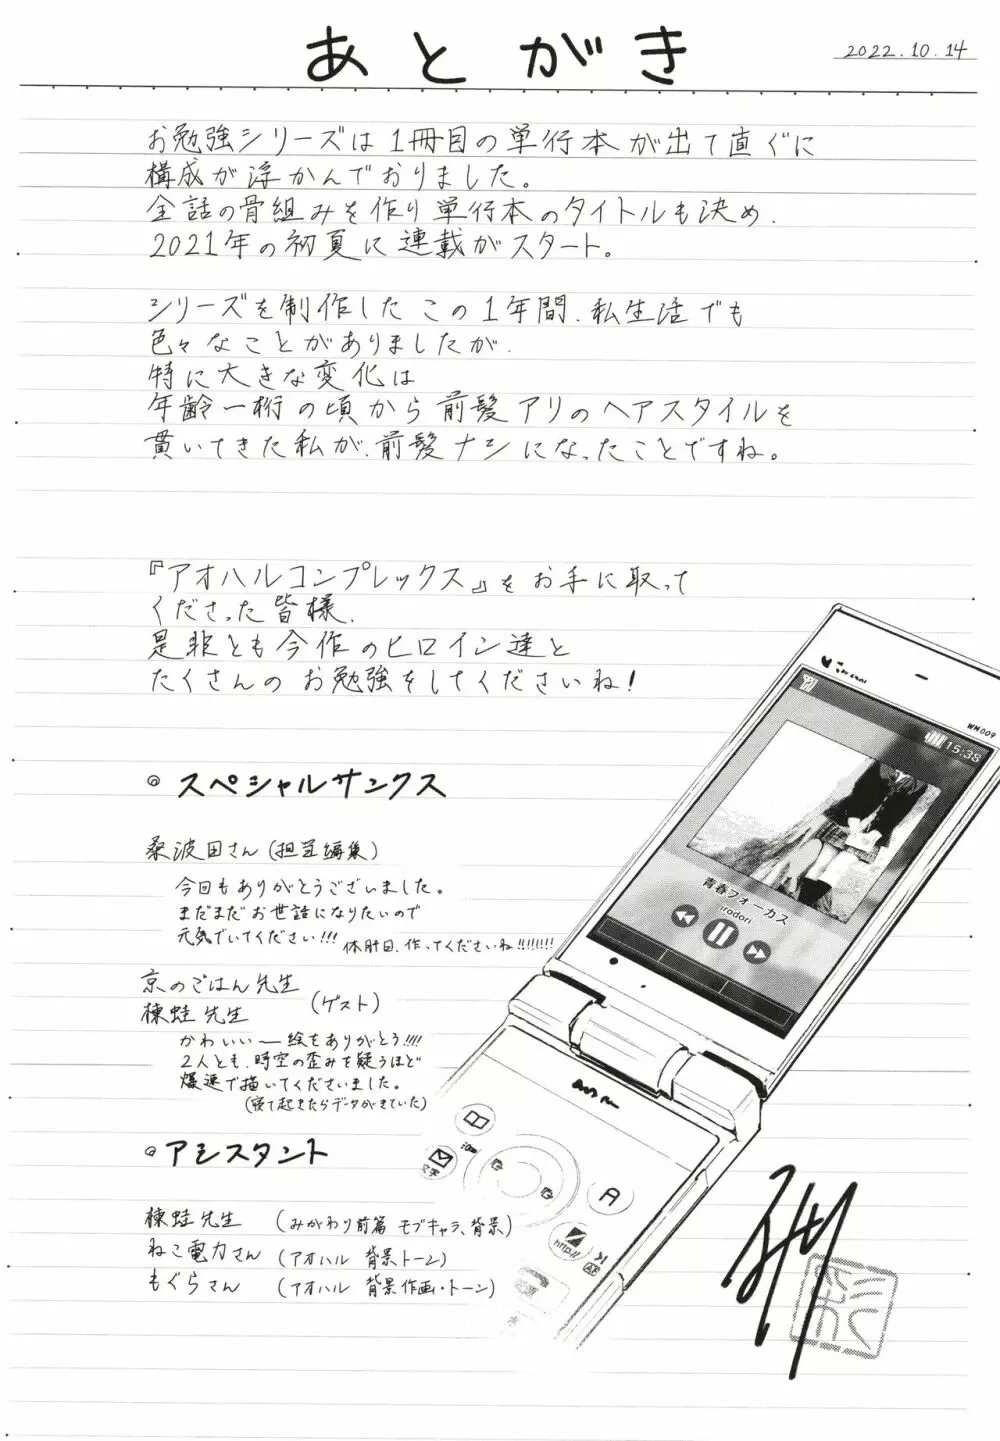 あとがき
2022.10.14
お勉強シリーズは1冊目の単行本が出て直ぐに
構成が浮かんでおりました。
全話の骨組みを作り単行本のタイトルも決め、
2021年の初夏に連載がスタート。
シリーズを制作したこの1年間、私生活でも
色々なことがありましたが、
特に大きな変化は
年齢一桁の頃から前髪アリのヘアスタイルを
貫いてきた私が、前髪ナシになったことですね。
『アオハルコンプレックス』をお手に取って
くださった皆様、
是非とも今作のヒロイン達と
たくさんのお勉強をしてくださいね!
スペシャルサンクス
桑波田さん(担当編集)
今回もありがとうございました。
まだまだお世話になりたいので
元気でいてください!!! 休肝日、作ってくださいね!!!!!!!!
京のごはん先生
棟蛙先生
(ゲスト)
かわいい〜絵をありがとう!!!!
2人とも、時空の歪みを疑うほど
爆速で描いてくださいました。
(寝て起きたらデータがきていた)
アシスタント
棟蛙先生 (みがわり前篇 モブキャラ、背景)
ねこ電力さん (アオハル 背景トーン)
もぐらさん (アオハル 背景作画・トーン)
WN009
15:38
青春フォーカス
irodori
文字
A
http://